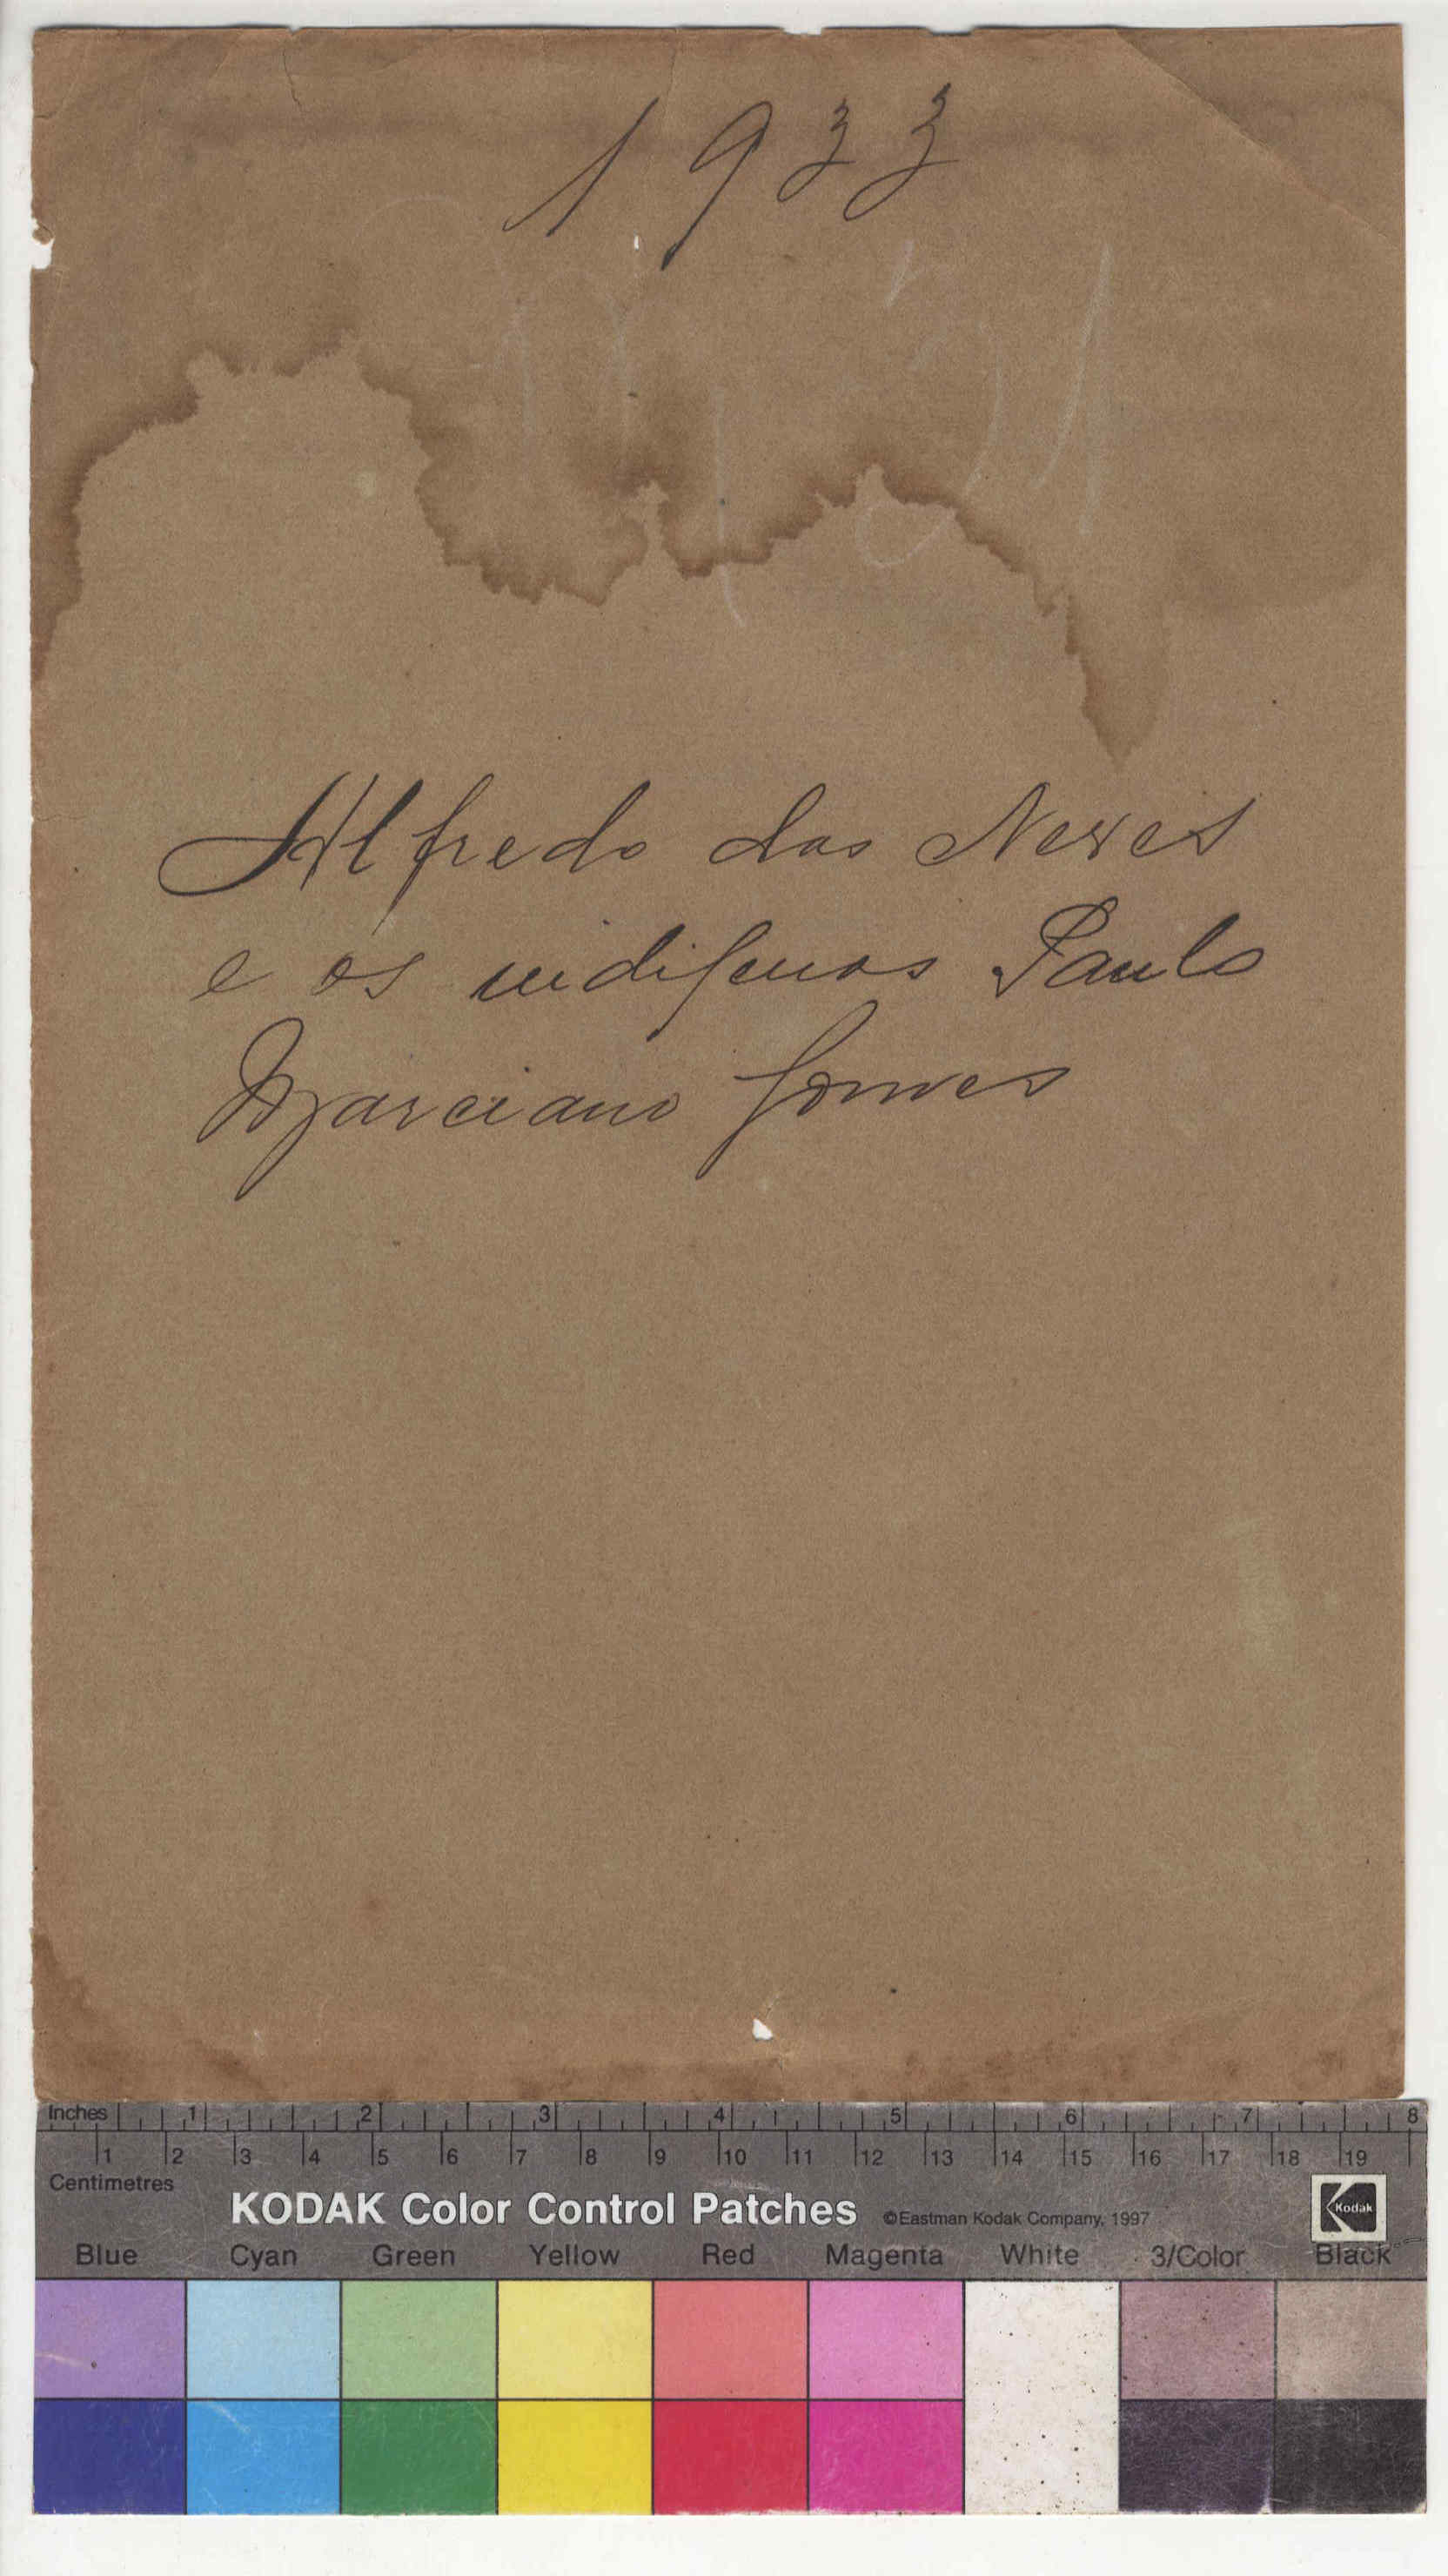 1933
Alfredo das Neves
e os indigenas Paulo
Marciano Gomes
Inches 1 2 3 4 5 6 7 8
1 2 3 4 5 6 7 8 9 10 11 12 13 14 15 16 17 18 19
Centimetres
KODAK Color Control Patches ©Eastman Kodak Company, 1997 Kodak
Blue Cyan Green Yellow Red Magenta White 3/Color Black